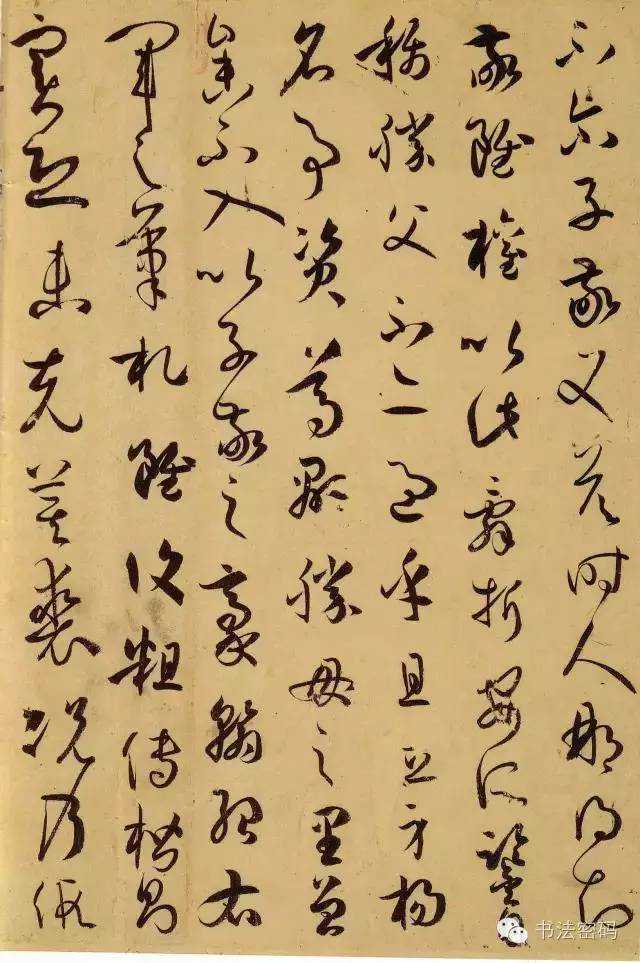 不爾子敬又答時人那得知
敬雖權以此辭折安所鑒自
稱勝父不亦過乎且立身揚
名事資尊顯勝母之里曾
參不入以子敬之豪翰紹右
軍之筆札雖復粗傳楷則
實恐未克箕裘況乃假
书法密码